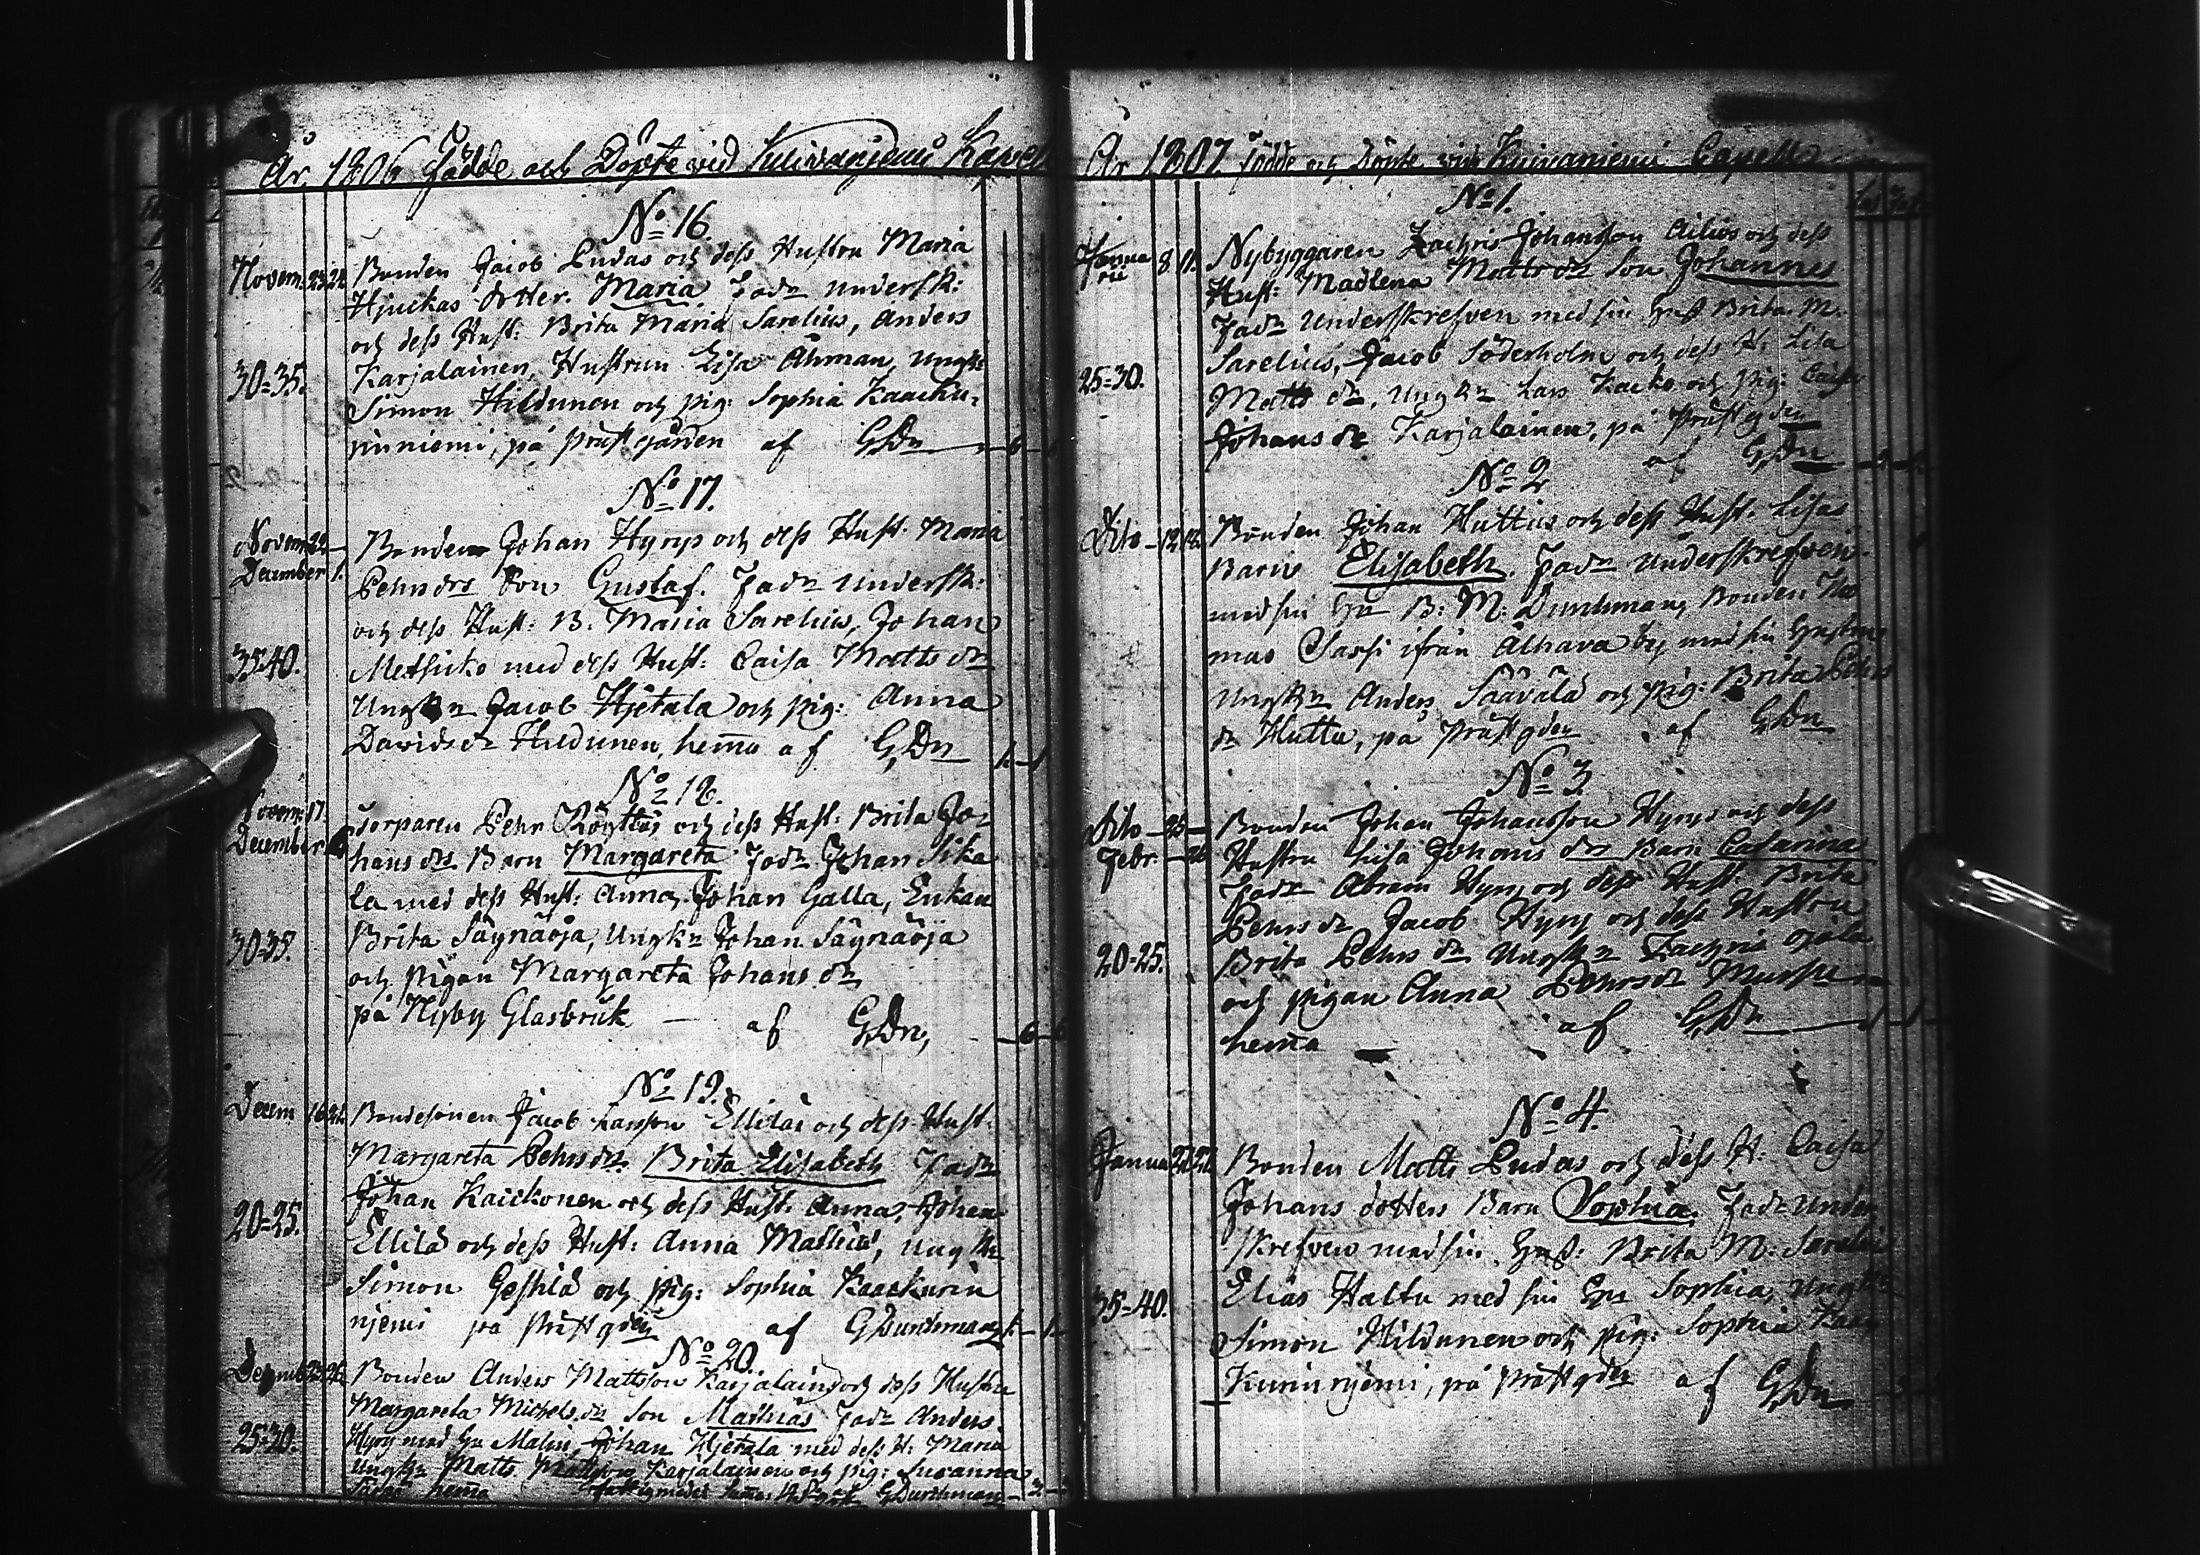 År 1806 Födde och Döpte vid Kuivaniemi Capell
No 16.
Novem: 23 24 Bonden Jacob Ludas och dess Hustru Maria
Hjuckas dotter. Maria Fadr undersk:
och dess Hust: Brita Maria Sarelius, Anders
30=35. Karjalainen, Hustrun Lisa Åhman, Ungk:
Simon Hildunen och pig: Sophia Kaacku
rinniemi, på prästgården af GDn 6 6
No 17.
Novem 22
December 1. Bonden Johan Hyrys och dess Hust: Maria
Pehrsdrs Son Gustaf. Fadr undersk:
och dess Hust: B: Maria Sarelius, Johan
35-40. Metsicko med dess Hust: Caisa Mattsdr
Ungkn Jacob Hjetala och pig: Anna
Davidsdr Hildunen, hemma af GDn 1 1
No 18.
Novem: 17.
December Torparen Pehr Röyttäs och dess Hust: Brita Jo=
hansdrs Barn Margareta Fadr Johan Sika
la med dess Hust: Anna, Johan Galla, Enkan
30-35. Brita Säynäöja, Ungkn Johan Säynäöja
och pigan Margareta Johansdr
på Nyby Glasbruk — af GDn, 6 6
No 19.
Decem 16 21. Bondesonen Jacob Larsson Ellilas och dess Hust:
Margareta Pehrsdrs Brita Elisabeth Fadr
Johan Kaickonen och dess Hust: Anna, Johan
20=25. Ellilä och dess Hust: Anna Mathiae, ungkn
Simon och pig: Sophia Kaackurin
njemi på prästgden af GDurchman 1 1
No 20.
Bonden Anders Mattsson Karjalain och dess Hustru
Margareta Michelsdrs Son Mathias Fadr Anders
25=30. Hyry med Hu Malin, Johan Hjetala med dess H: Maria
Ungkn Matts Karjalainen och pig: Susanna
hemma GDurchman
År 1807. Födde och Döpte vid Kuivaniemi Capell
No 1.
Janua
rii 8 11. Nybyggaren Zachris Johansson Ailius och dess
Hust: Madlena Mattsdr Son Johannes
Fadr Underskrefven med sin Hust Brita M:
Sarelius, Jacob Söderholm och dess H: Lisa
25=30. Mattsdr, Ungkn Lars Kacko och pig: Caisa
Johansdr Karjalainen, på prästgden
af GDn
No 2
Dito 12 12 Bonden Johan Huttus och dess Hust: Lisas
Barn Elisabeth. Fadr Underskrefven
med sin Hu B: M: Durchman, Bonden Tho
mas Sassi ifrån Alhava by med sin Hustru
Ungkn Anders Säävälä och pig: Brita Pehrs
dr Huttu, på prästgden af GDn
No 3
Dito 25
Febr. Bonden Johan Johansson Hyrys och dess
Hustru Lisa Johansdrs Barn Catarina
Fadr Abram Hyry och dess Hust: Brita
Pehrsdr Jacob Hyry och dess Hustru
20-25. Brita Pehrsdr Ungkn Zachris Ojala
och pigan Anna Pehrsdr
hemma — af GDn 1
No 4.
Janua 22 22 Bonden Matts Ludas och dess H: Caisa
Johans dotters Barn Sophia. Fadr Under
skrefven med sin Hust: Brita M: Sareli
35-40. Elias Haltu med sin Hu Sophia, ungkn
Simon Hildunen och pig: Sophia Kaac
kurinnjemi, på prästgden af GDn